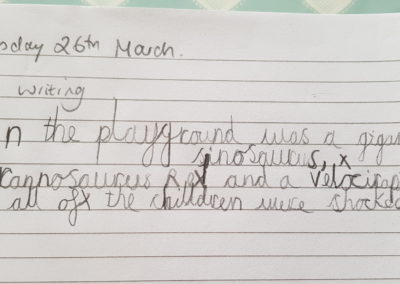 sday 26th March.
writing
n the playground was a gigan
sinosaurus, x
rannosaurus Rex and a Velocirap
all of the children were shocked